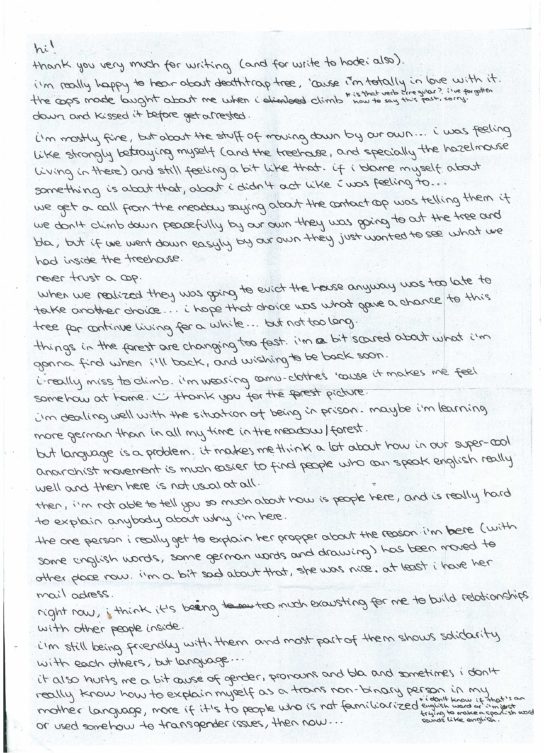 hi!
thank you very much for writing (and for write to hodei also).
i'm really happy to hear about deathtrap tree, 'cause i'm totally in love with it.
the cops made laught about me when i climb * is that verb irregular? i've forgotten
down and kissed it before get arrested. how to say this past, sorry.
i'm mostly fine, but about the stuff of moving down by our own... i was feeling
like strongly betraying myself (and the treehouse, and specially the hazelmouse
living in there) and still feeling a bit like that. if i blame myself about
something is about that, about i didn't act like i was feeling to...
we get a call from the meadow saying about the contact cop was telling them if
we don't climb down peacefully by our own they was going to cut the tree and
bla, but if we went down easyly by our own they just wanted to see what we
had inside the treehouse.
never trust a cop.
when we realized they was going to evict the house anyway was too late to
take another choice... i hope that choice was what gave a chance to this
tree for continue living for a while... but not too long.
things in the forest are changing too fast. i'm a bit scared about what i'm
gonna find when i'll back, and wishing to be back soon.
i really miss to climb. i'm wearing camu-clothes 'cause it makes me feel
somehow at home. thank you for the forest picture.
i'm dealing well with the situation of being in prison. maybe i'm learning
more german than in all my time in the meadow/forest.
but language is a problem. it makes me think a lot about how in our super-cool
anarchist movement is much easier to find people who can speak english really
well and then here is not usual at all.
then, i'm not able to tell you so much about how is people here, and is really hard
to explain anybody about why i'm here.
the one person i really get to explain her propper about the reason i'm here (with
some english words, some german words and drawing) has been moved to
other place now. i'm a bit sad about that, she was nice. at least i have her
mail adress.
right now, i think it's being too much exausting for me to build relationships
with other people inside.
i'm still being friendly with them and most part of them shows solidarity
with each others, but language...
it also hurts me a bit cause of gender, pronouns and bla and sometimes i don't
really know how to explain myself as a trans non-binary person in my
mother language, more if it's to people who is not familiarized * i don't know if that's an english word or i'm just
or used somehow to transgender issues, then now... trying to make a spanish word sounds like english.